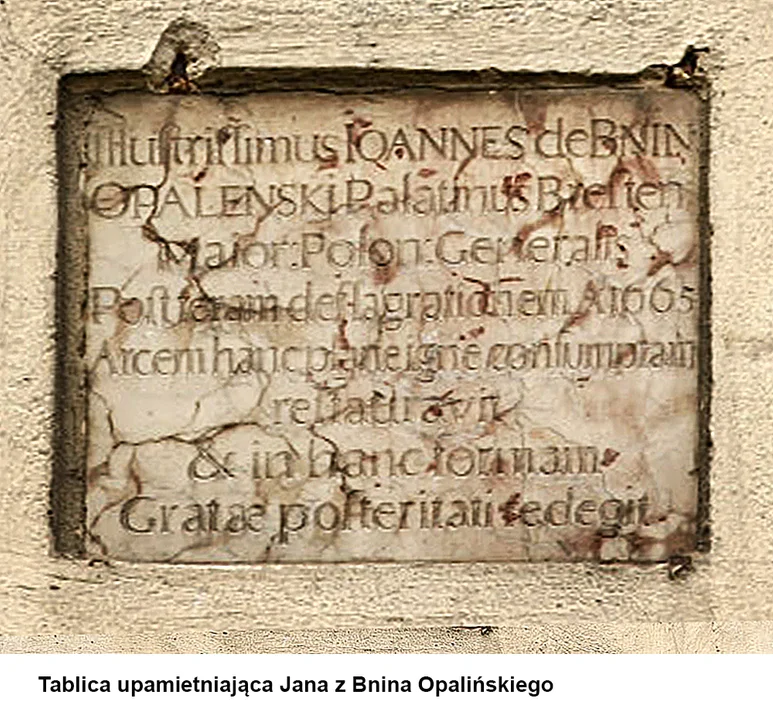 Illuſtriſſimus IOANNES de BNIN
OPALENSKI Palatinus Breſten
Maior: Poſon: Generalis
Poſt feram deflagrationem A 1665
Arcem hanc plane igne conſumptam
reſtauravit
& in hanc formam
Gratae poſteritati redegit
Tablica upamietniająca Jana z Bnina Opalińskiego